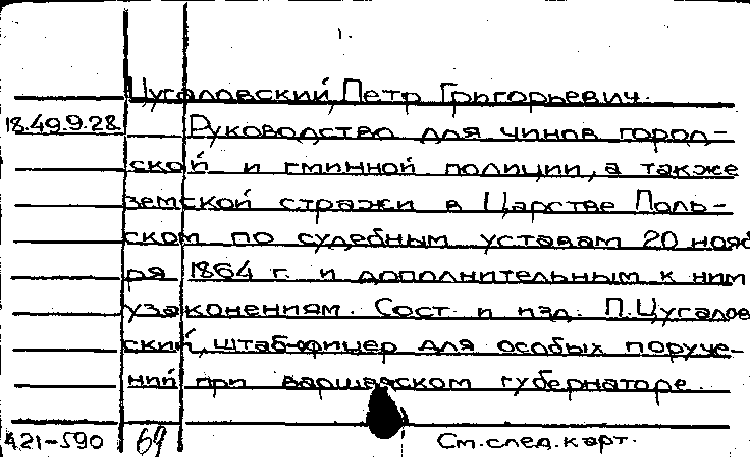 1.
Цугаловский, Петр Григорьевич.
18.49.9.28 Руководство для чинов город-
ской и гминной полиции, а также
земской стражи в Царстве Поль-
ском по судебным уставам 20 нояб
ря 1864 г. и дополнительным к ним
узаконениям. Сост. и изд. П.Цугалов
ский, штаб-офицер для особых поруче-
ний при варшавском губернаторе.
421-590 69 См.след.карт.